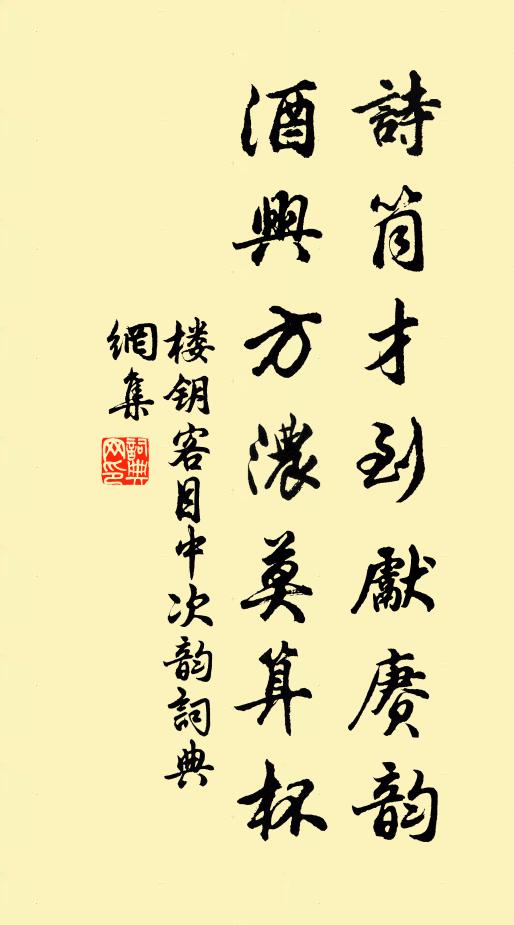 詩筒才到獻赓韵
酒興方濃莫算杯
楼钥客目中次韵詞典
網集
詞典
网印